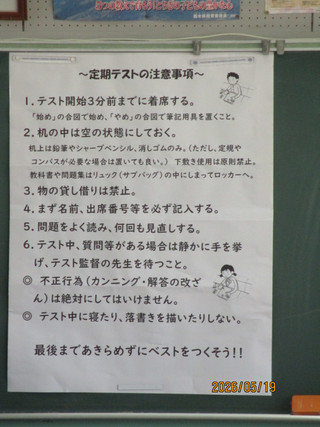 ～定期テストの注意事項～
1．テスト開始3分前までに着席する。
「始め」の合図で始め、「やめ」の合図で筆記用具を置くこと。
2．机の中は空の状態にしておく。
机上は鉛筆やシャープペンシル、消しゴムのみ。（ただし、定規や
コンパスが必要な場合は置いても良い。）下敷き使用は原則禁止。
教科書や問題集はリュック（サブバッグ）の中にしまってロッカーへ。
3．物の貸し借りは禁止。
4．まず名前、出席番号等を必ず記入する。
5．問題をよく読み、何回も見直しする。
6．テスト中、質問等がある場合は静かに手を挙
げ、テスト監督の先生を待つこと。
◎ 不正行為（カンニング・解答の改ざ
ん）は絶対にしてはいけません。
◎ テスト中に寝たり、落書きを描いたりしない。
最後まであきらめずにベストをつくそう！！
2026/05/19